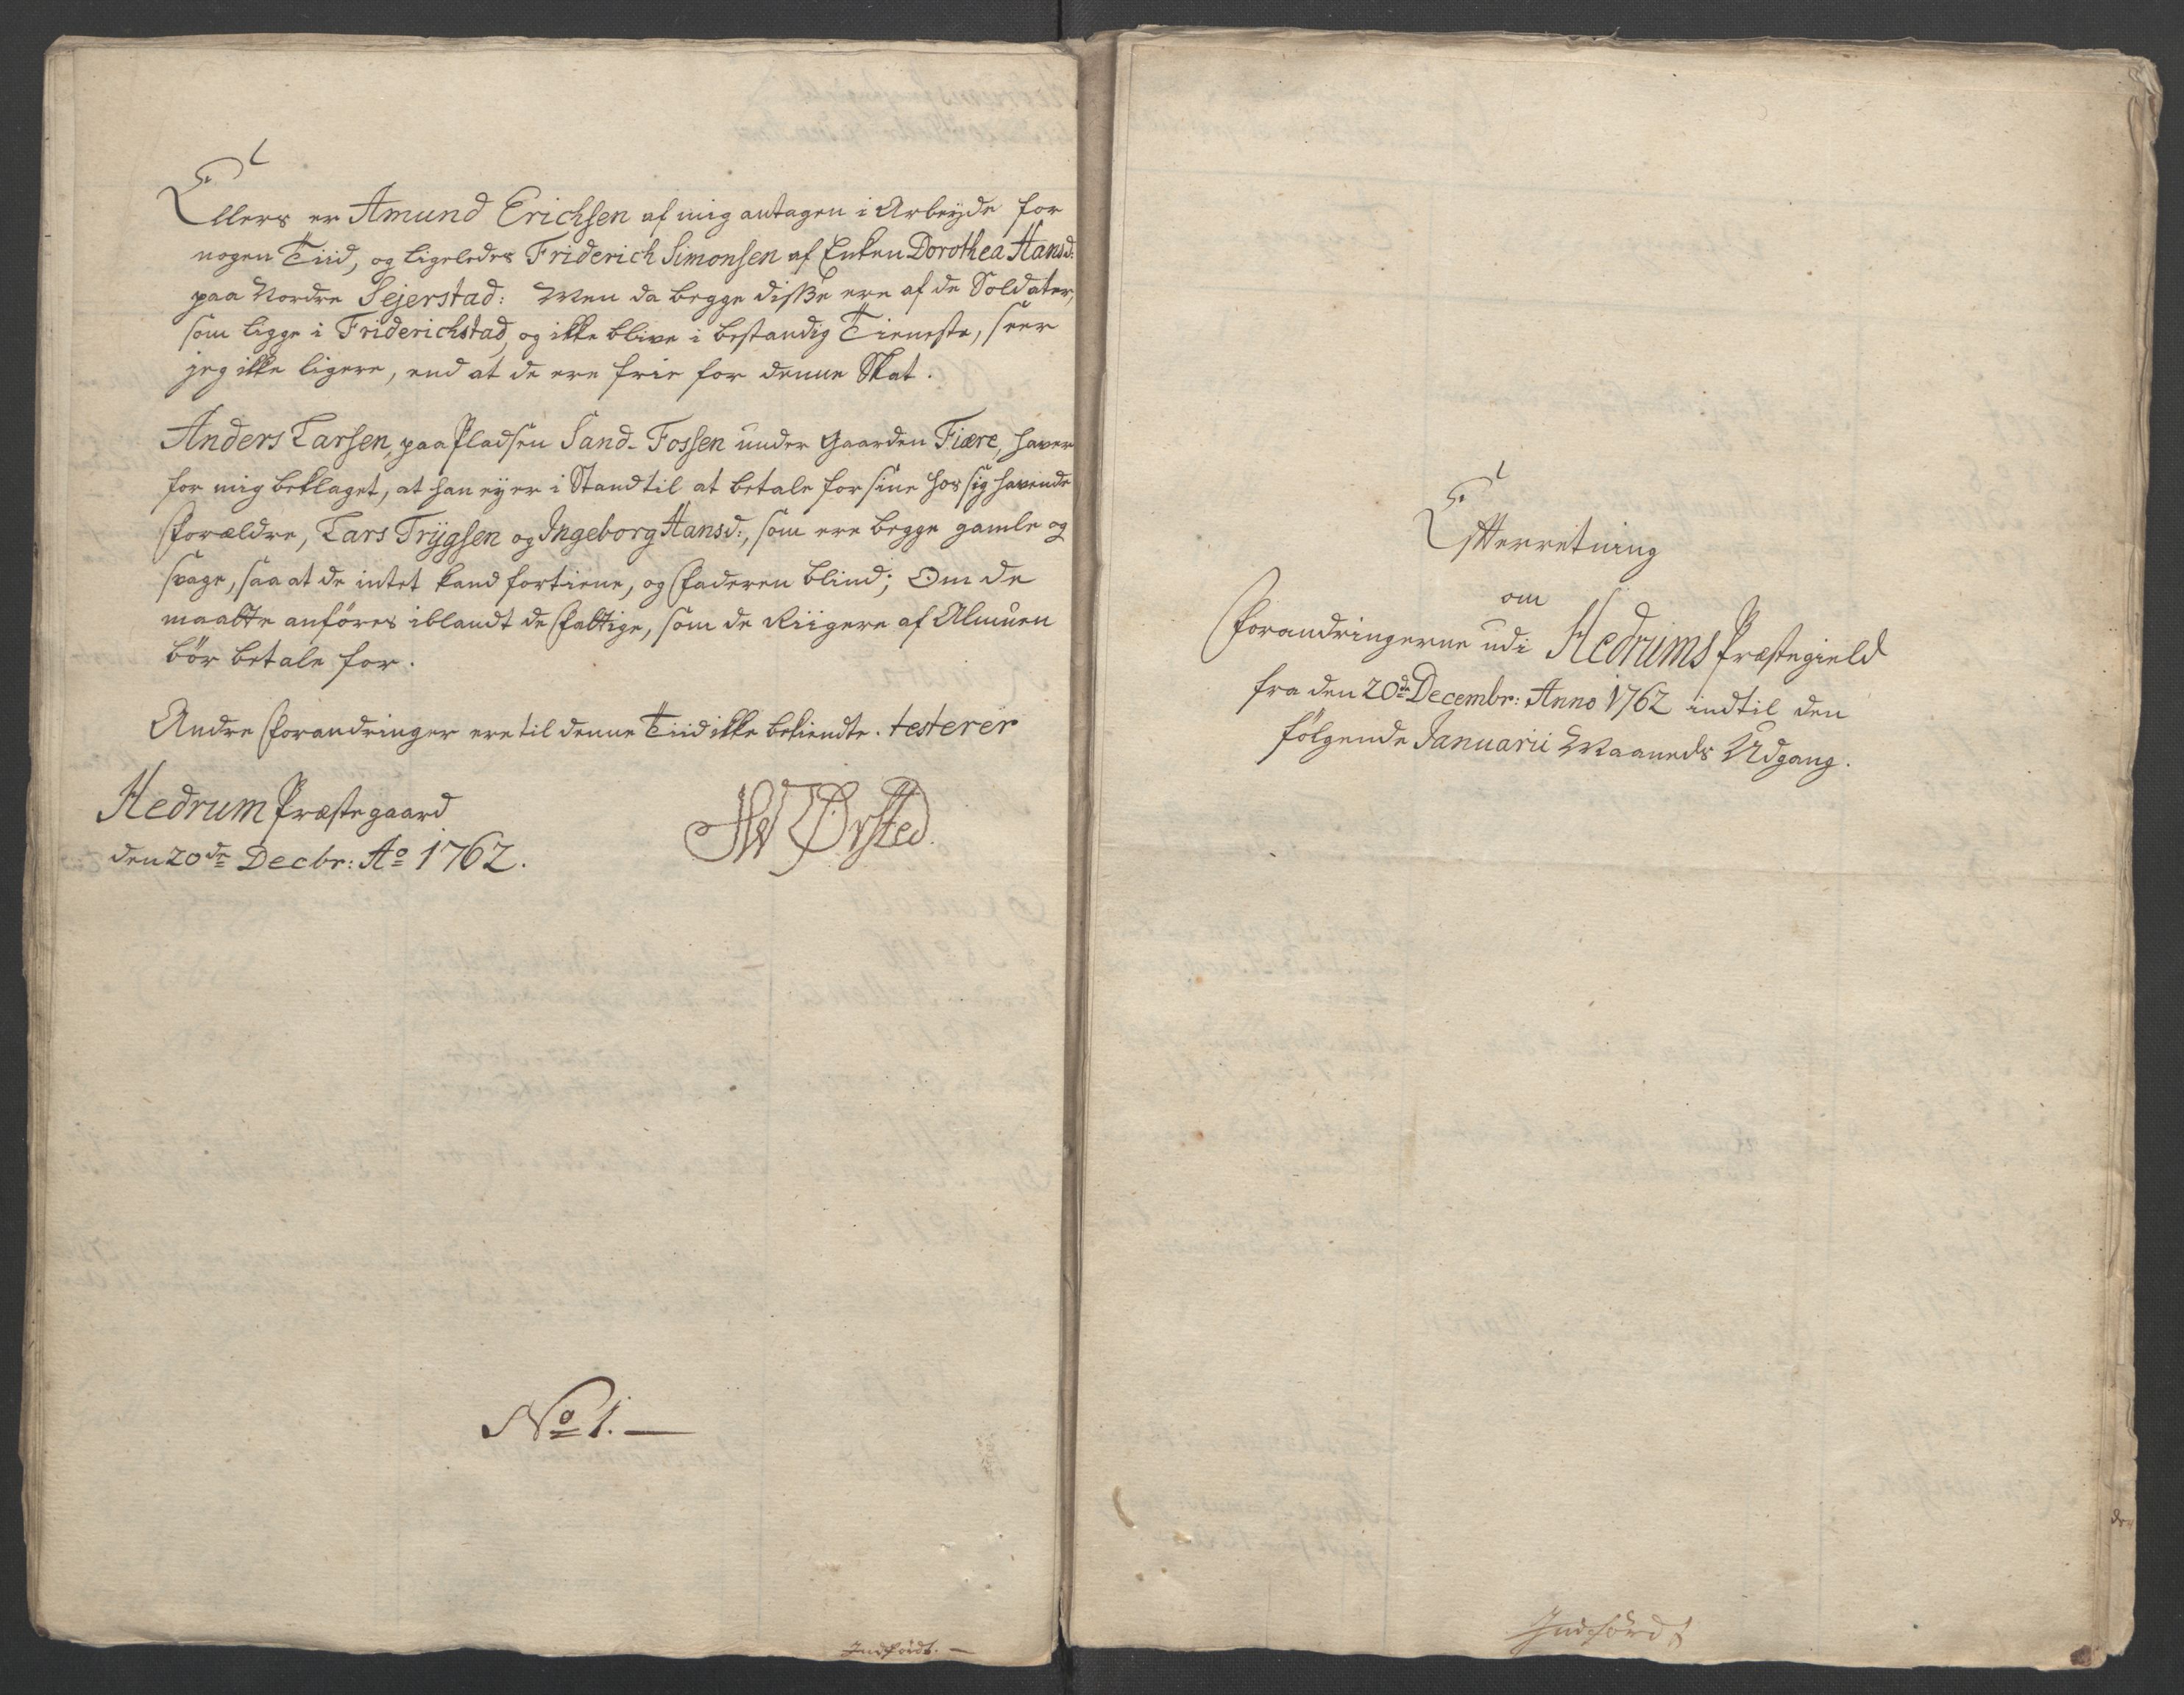 Ellers er Amund Erichsen af mig antagen i Arbeyde for
nogen Tiid, og ligeledes Friderich Simonsen af Enken Dorothea Hansd:
paa Nordre Sejerstad: Men da begge disse ere af de Soldater,
som ligge i Friderichstad, og ikke blive i bestandig Tieneste, seer
jeg ikke ligere, end at de ere frie for denne Skat.
Anders Larsen, paa Pladsen Sand-Fossen under Gaarden Fiære, haver
for mig beklaget, at han ey er i Stand til at betale for sine hos sig havende
Forældre, Lars Trygsen og Ingeborg Hansd:, som ere begge gamle og
svage, saa at de intet kand fortiene, og Faderen blind; Om de
maatte anföres iblandt de Fattige, som de Riigere af Almuen
bör betale for.
Andre Forandringer ere til denne Tiid ikke bekiendte. testerer
Hedrum Præstegaard
den 20de Decbr: Ao 1762.
HW Ørsted.
No 1. —
Indfördt. —
Efterretning
om
Forandringerne udi Hedrums Præstegield
fra den 20de Decembr: Anno 1762 indtil den
fölgende Januarii Maaneds Udgang.
Indförd